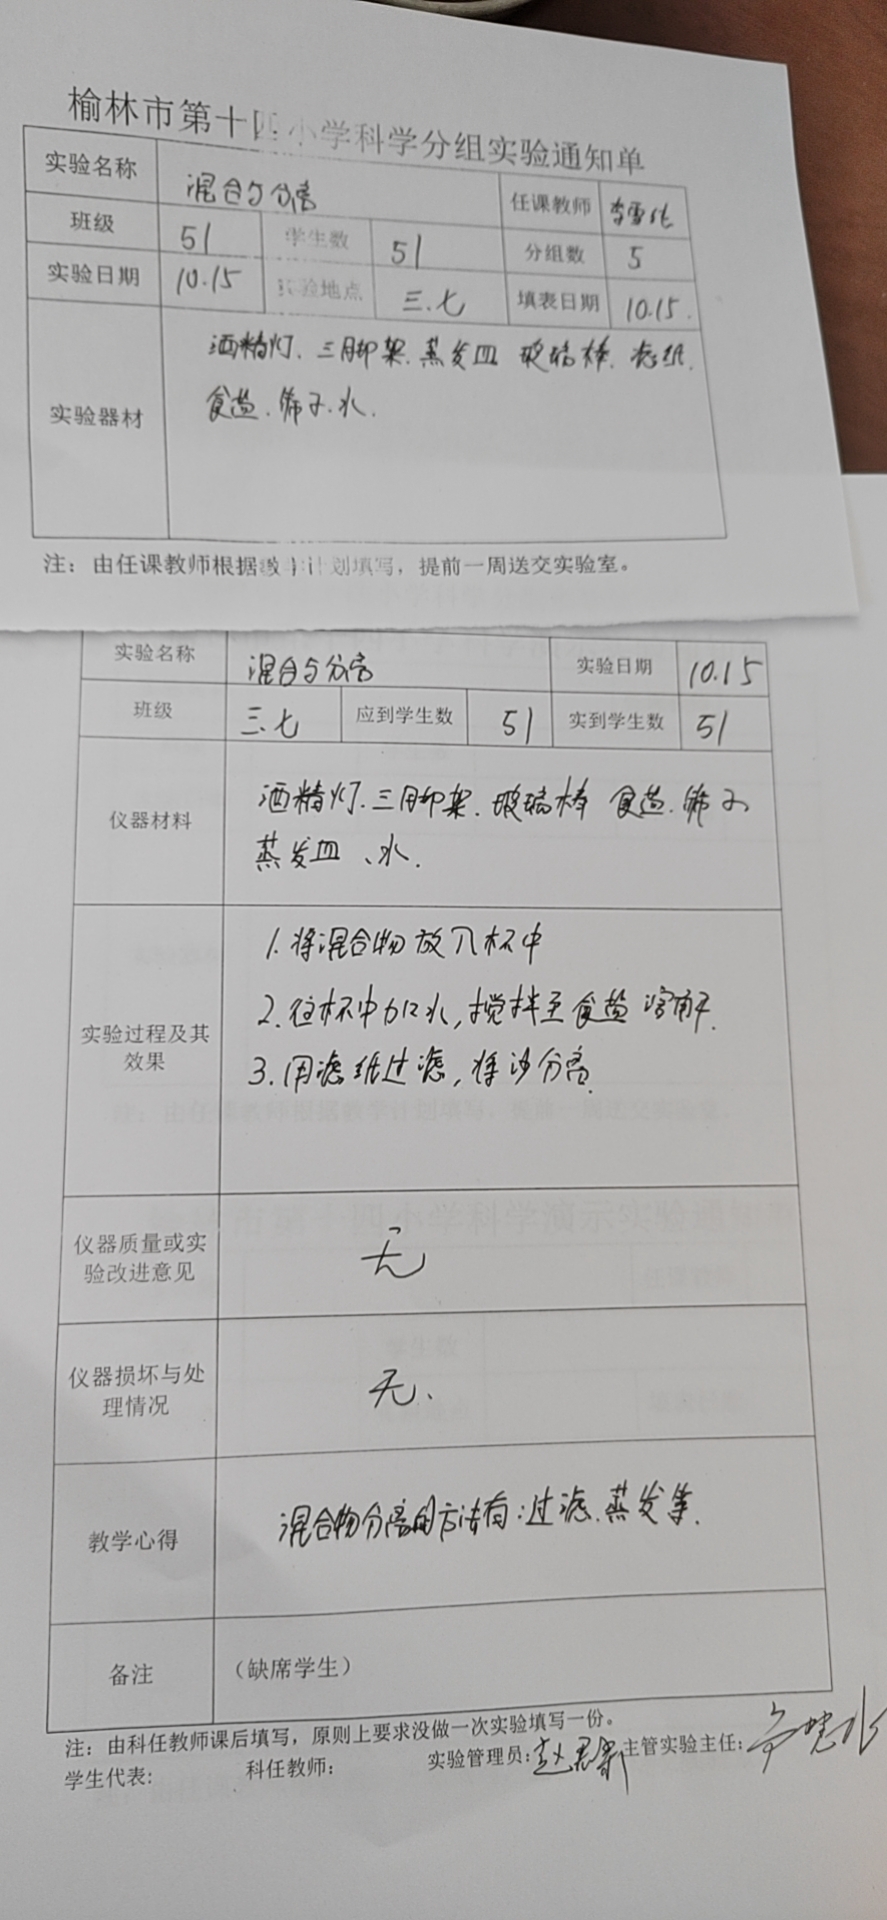 榆林市第十四小学科学分组实验通知单
实验名称 混合与分离 任课教师
班级 51 学生数 51 分组数 5
实验日期 10.15 实验地点 三.七 填表日期 10.15.
酒精灯.三脚架.蒸发皿 玻璃棒.滤纸.
实验器材 食盐.筛子.水.
注：由任课教师根据教学计划填写，提前一周送交实验室。
实验名称 混合与分离 实验日期 10.15
班级 三.七 应到学生数 51 实到学生数 51
仪器材料 酒精灯.三脚架.玻璃棒 食盐.筛子
蒸发皿、水.
1.将混合物放入杯中
2.往杯中加水,搅拌至食盐溶解.
实验过程及其
效果
3.用滤纸过滤,将沙分离.
仪器质量或实
验改进意见
无
仪器损坏与处
理情况
无.
教学心得 混合物分离的方法有:过滤.蒸发等.
备注 （缺席学生）
注：由科任教师课后填写，原则上要求没做一次实验填写一份。
学生代表: 科任教师: 实验管理员: 主管实验主任: